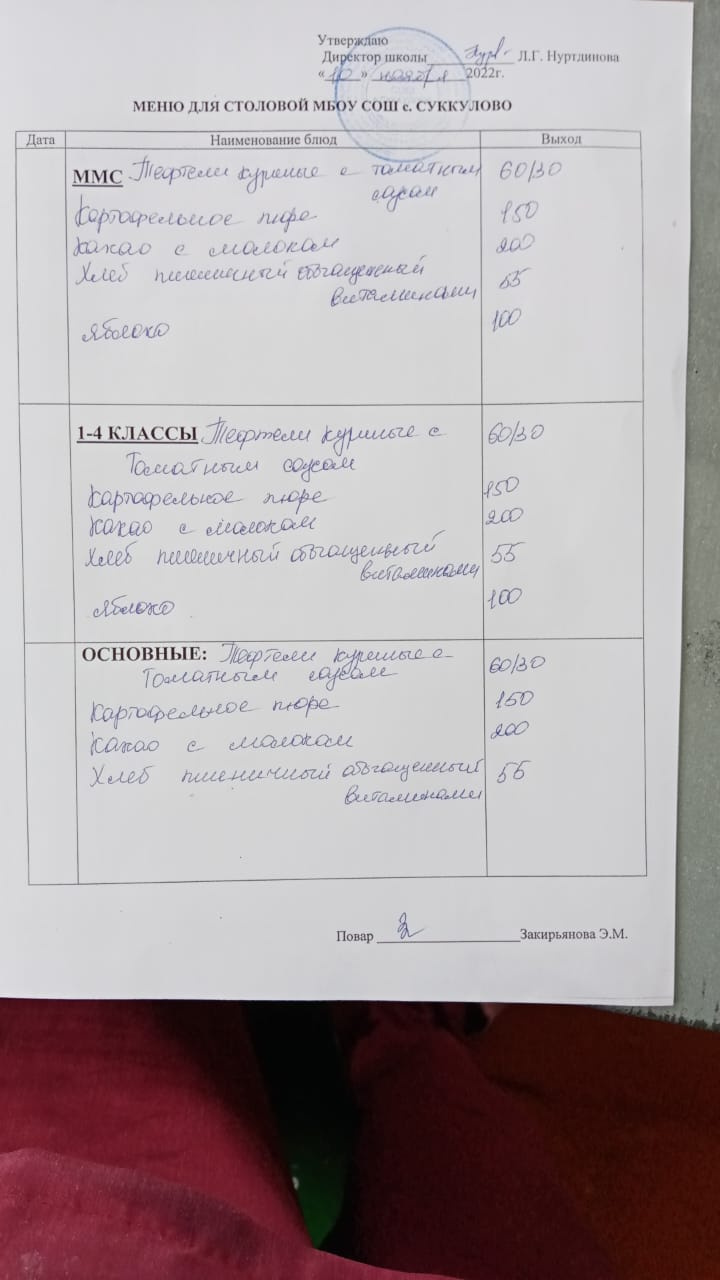 Утверждаю
Директор школы Л.Г. Нуртдинова
«10» ноября 2022г.
МЕНЮ ДЛЯ СТОЛОВОЙ МБОУ СОШ с. СУККУЛОВО
Дата Наименование блюд Выход
ММС Тефтели куриные с томатным 60/30
соусом
Картофельное пюре 150
Какао с молоком 200
Хлеб пшеничный обогащенный 55
витаминами
яблоко 100
1-4 КЛАССЫ Тефтели куриные с 60/30
Томатным соусом
Картофельное пюре 150
Какао с молоком 200
Хлеб пшеничный обогащенный 55
витаминами
яблоко 100
ОСНОВНЫЕ: Тефтели куриные с 60/30
Томатным соусом
Картофельное пюре 150
Какао с молоком 200
Хлеб пшеничный обогащенный 55
витаминами
Повар Закирьянова Э.М.